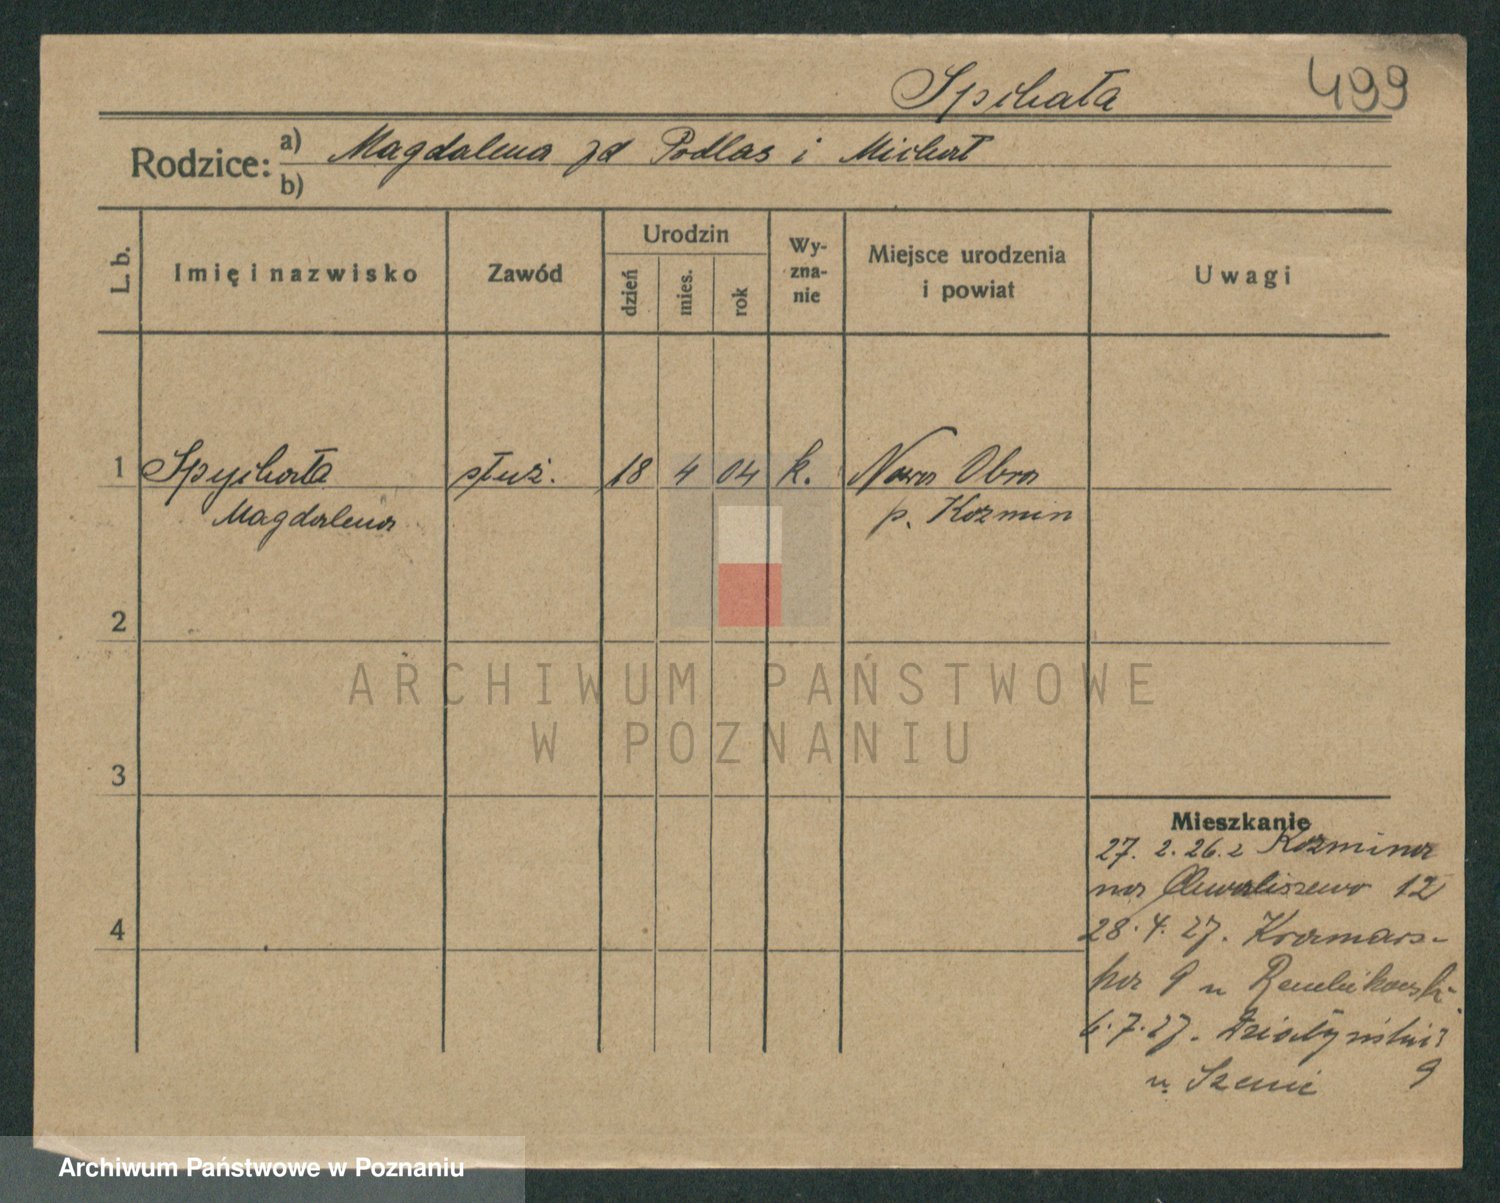 Spihała 499
Rodzice: a) Magdalena zd Podlas i Michał
b)
L. b. Imię i nazwisko Zawód Urodzin dzień mies. rok Wy-zna-nie Miejsce urodzenia i powiat Uwagi
1 Spychała służ. 18 4 04 k. Nowa Obra
Magdalena p. Kozmin
2
ARCHIWUM PAŃSTWOWE
W POZNANIU
3
Mieszkanie
27. 2. 26. z Kozmina
na Chwaliszewo 12
4
28. 4. 27. Kramars-
ka 9 u
6. 7. 27. Działyńskich
9
u
Archiwum Państwowe w Poznaniu